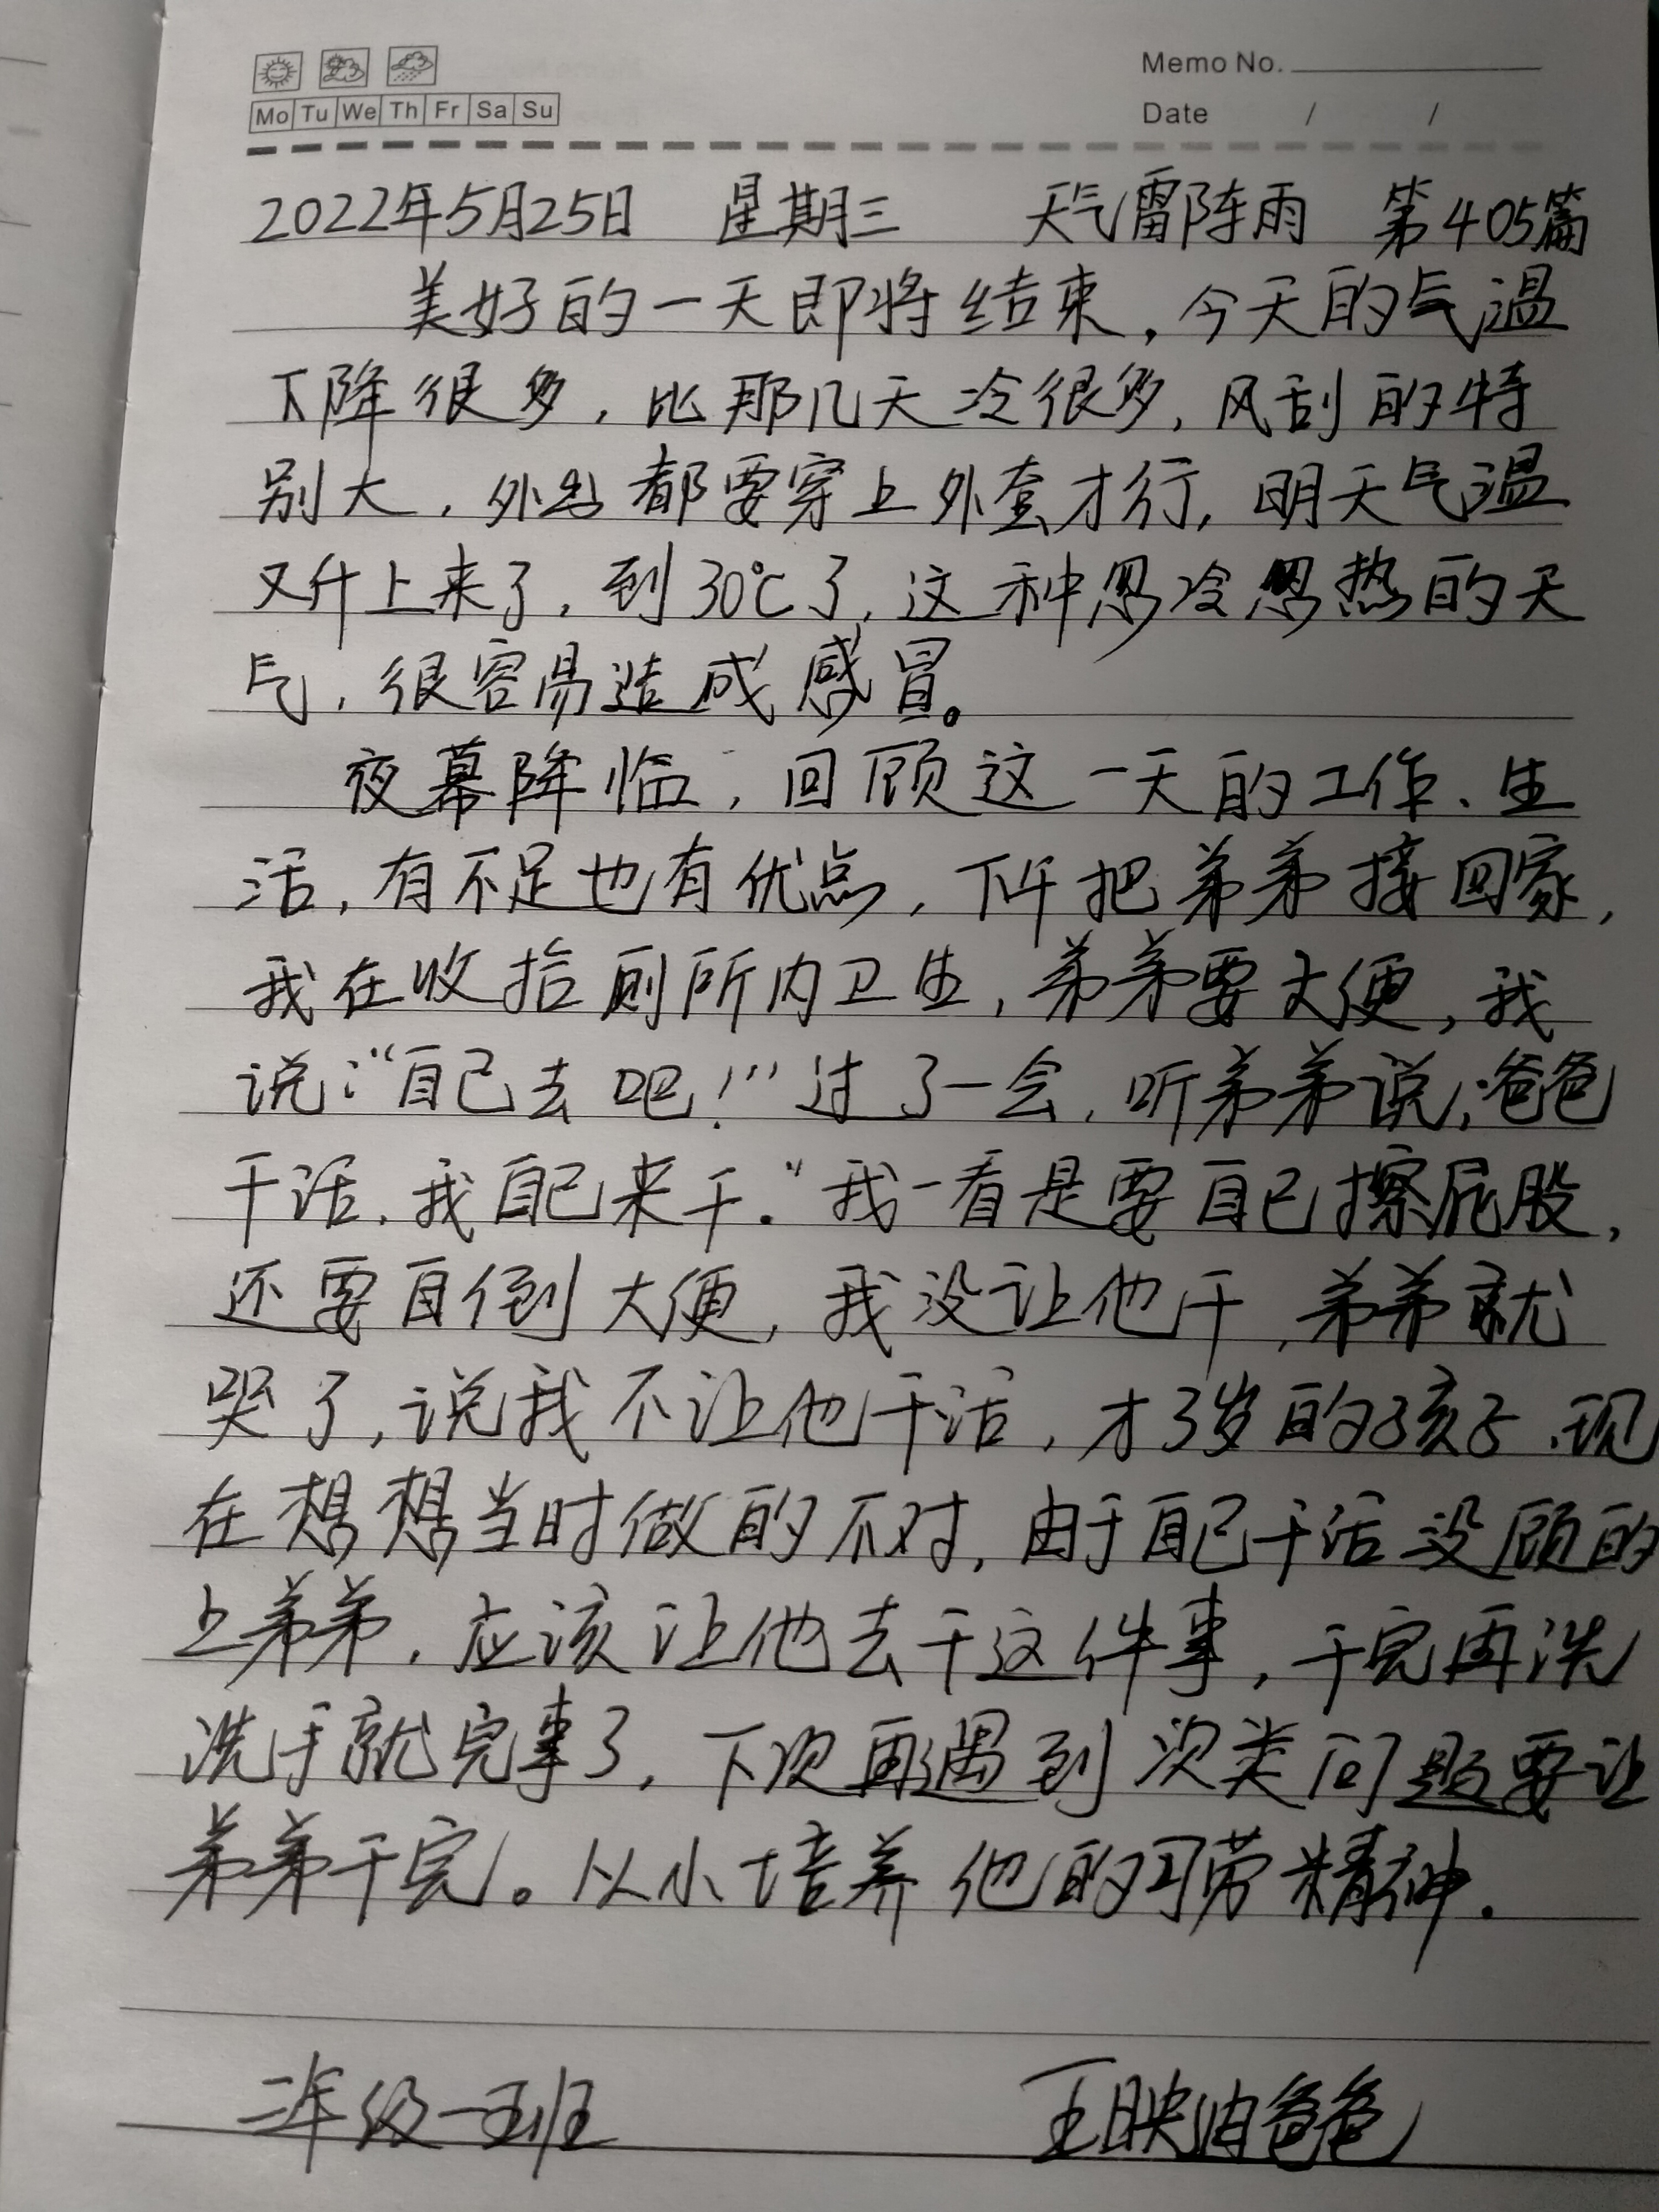 Memo No.
Mo Tu We Th Fr Sa Su
Date / /
2022年5月25日 星期三 天气雷阵雨 第405篇
美好的一天即将结束,今天的气温
下降很多,比那几天冷很多,风刮的特
别大,外出都要穿上外套才行,明天气温
又升上来了,到30℃了,这种忽冷忽热的天
气,很容易造成感冒。
夜幕降临,回顾这一天的工作、生
活,有不足也有优点,下午把弟弟接回家,
我在收拾厕所内卫生,弟弟要大便,我
说:“自己去吧!”过了一会,听弟弟说,爸爸
干活,我自己来干.”我一看是要自己擦屁股,
还要自倒大便,我没让他干,弟弟就
哭了,说我不让他干活,才3岁的孩子.现
在想想当时做的不对,由于自己干活没顾的
上弟弟,应该让他去干这件事,干完再洗
洗手就完事了,下次再遇到次类问题要让
弟弟干完。从小培养他的习劳精神.
二年级一班 王映爸爸